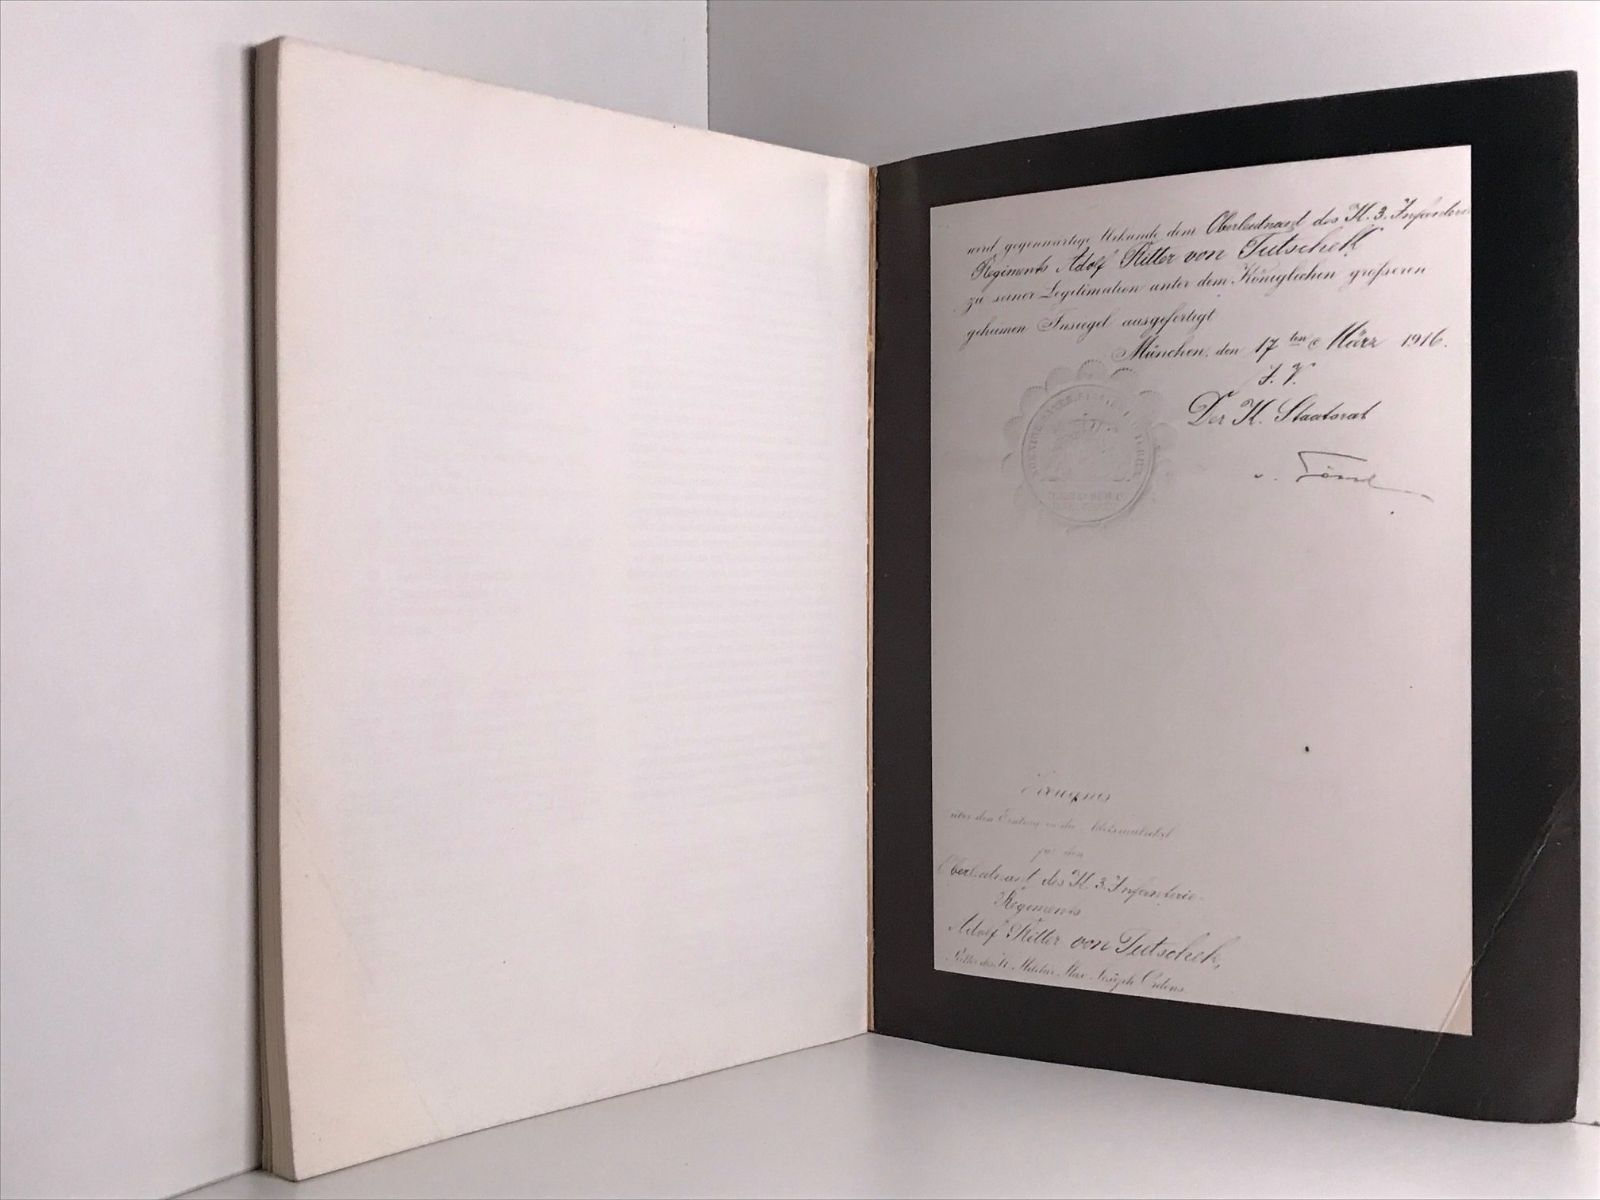 wird gegenwärtige Urkunde dem Oberleutnant des K. 3. Infanterie
Regiments Adolf Ritter von Tutschek
zu seiner Legitimation unter dem Königlichen größeren
geheimen Insiegel ausgefertigt
München, den 17ten März 1916.
I. V.
Der K. Staatsrat
v.
Zeugnis
über den Eintrag in die Adelsmatrikel
für den
Oberleutnant des K. 3. Infanterie-
Regiments
Adolf Ritter von Tutschek,
Ritter des K. Militär Max Joseph Ordens